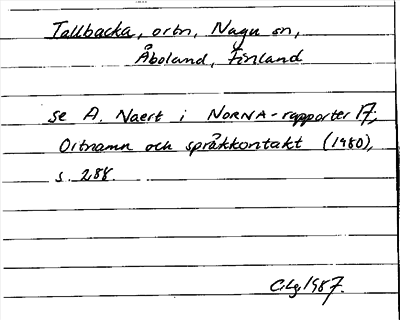 Tallbacka, ortn, Nagu sn,
Åboland, Finland
se A. Naert i NORNA-rapporter 17,
Ortnamn och språkkontakt (1980),
s. 288.
1987.